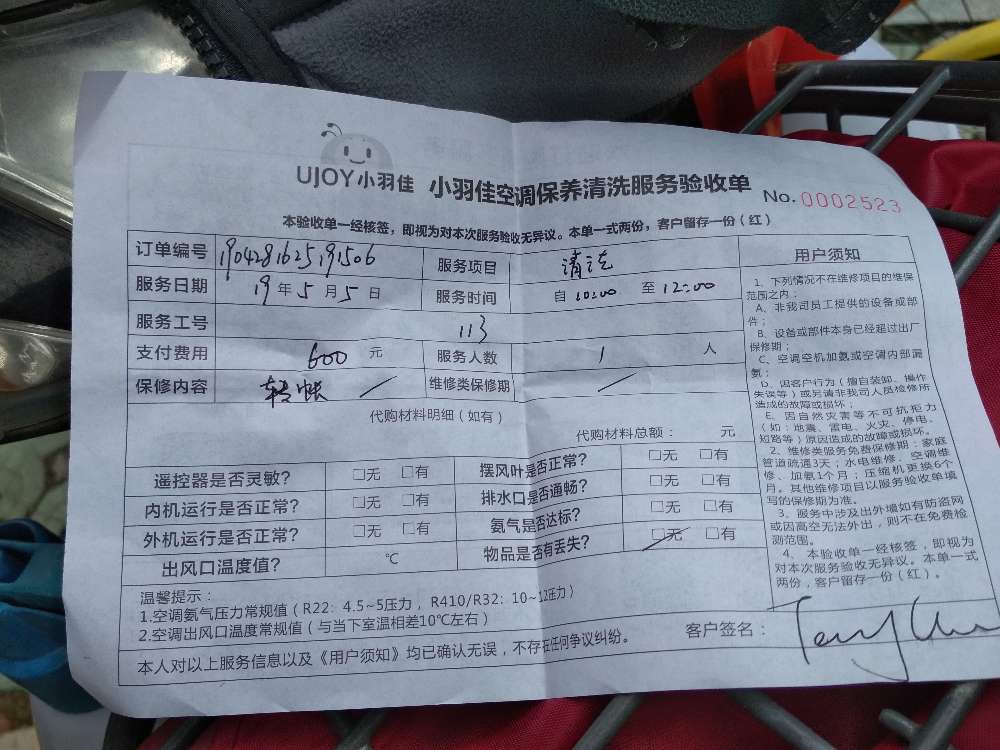 UJOY小羽佳 小羽佳空调保养清洗服务验收单
No. 0002523
本验收单一经核签，即视为对本次服务验收无异议。本单一式两份，客户留存一份（红）
订单编号 1904281625191506 服务项目 清洗
服务日期 19年5月5日 服务时间 自10:00 至12:00
服务工号 113
支付费用 600 元 服务人数 1 人
保修内容 转帐 维修类保修期
代购材料明细（如有）
代购材料总额： 元
遥控器是否灵敏？ □无 □有 摆风叶是否正常？ □无 □有
内机运行是否正常？ □无 □有 排水口是否通畅？ □无 □有
外机运行是否正常？ □无 □有 氨气是否达标？ □无 □有
出风口温度值？ ℃ 物品是否有丢失？ □无 □有
温馨提示：
1.空调氨气压力常规值（R22：4.5~5压力，R410/R32：10~12压力）
2.空调出风口温度常规值（与当下室温相差10℃左右）
本人对以上服务信息以及《用户须知》均已确认无误，不存在任何争议纠纷。
客户签名：
用户须知
1、下列情况不在维修项目的维保
范围之内：
A、非我司员工提供的设备或部
件；
B、设备或部件本身已经超过出厂
保修期；
C、空调空机加氨或空调内部漏
氨；
D、因客户行为（擅自装卸、操作
失误等）或另请非我司人员检修所
造成的故障或损坏；
E、因自然灾害等不可抗拒力
（如：地震、雷电、火灾、停电、
短路等）原因造成的故障或损坏。
2、维修类服务免费保修期：家庭
管道疏通3天；水电维修、空调维
修、加氨1个月；压缩机更换6个
月。其他维修项目以服务验收单填
写的保修期为准。
3、服务中涉及出外墙如有防盗网
或因高空无法外出，则不在免费检
测范围。
4、本验收单一经核签，即视为
对本次服务验收无异议。本单一式
两份，客户留存一份（红）。